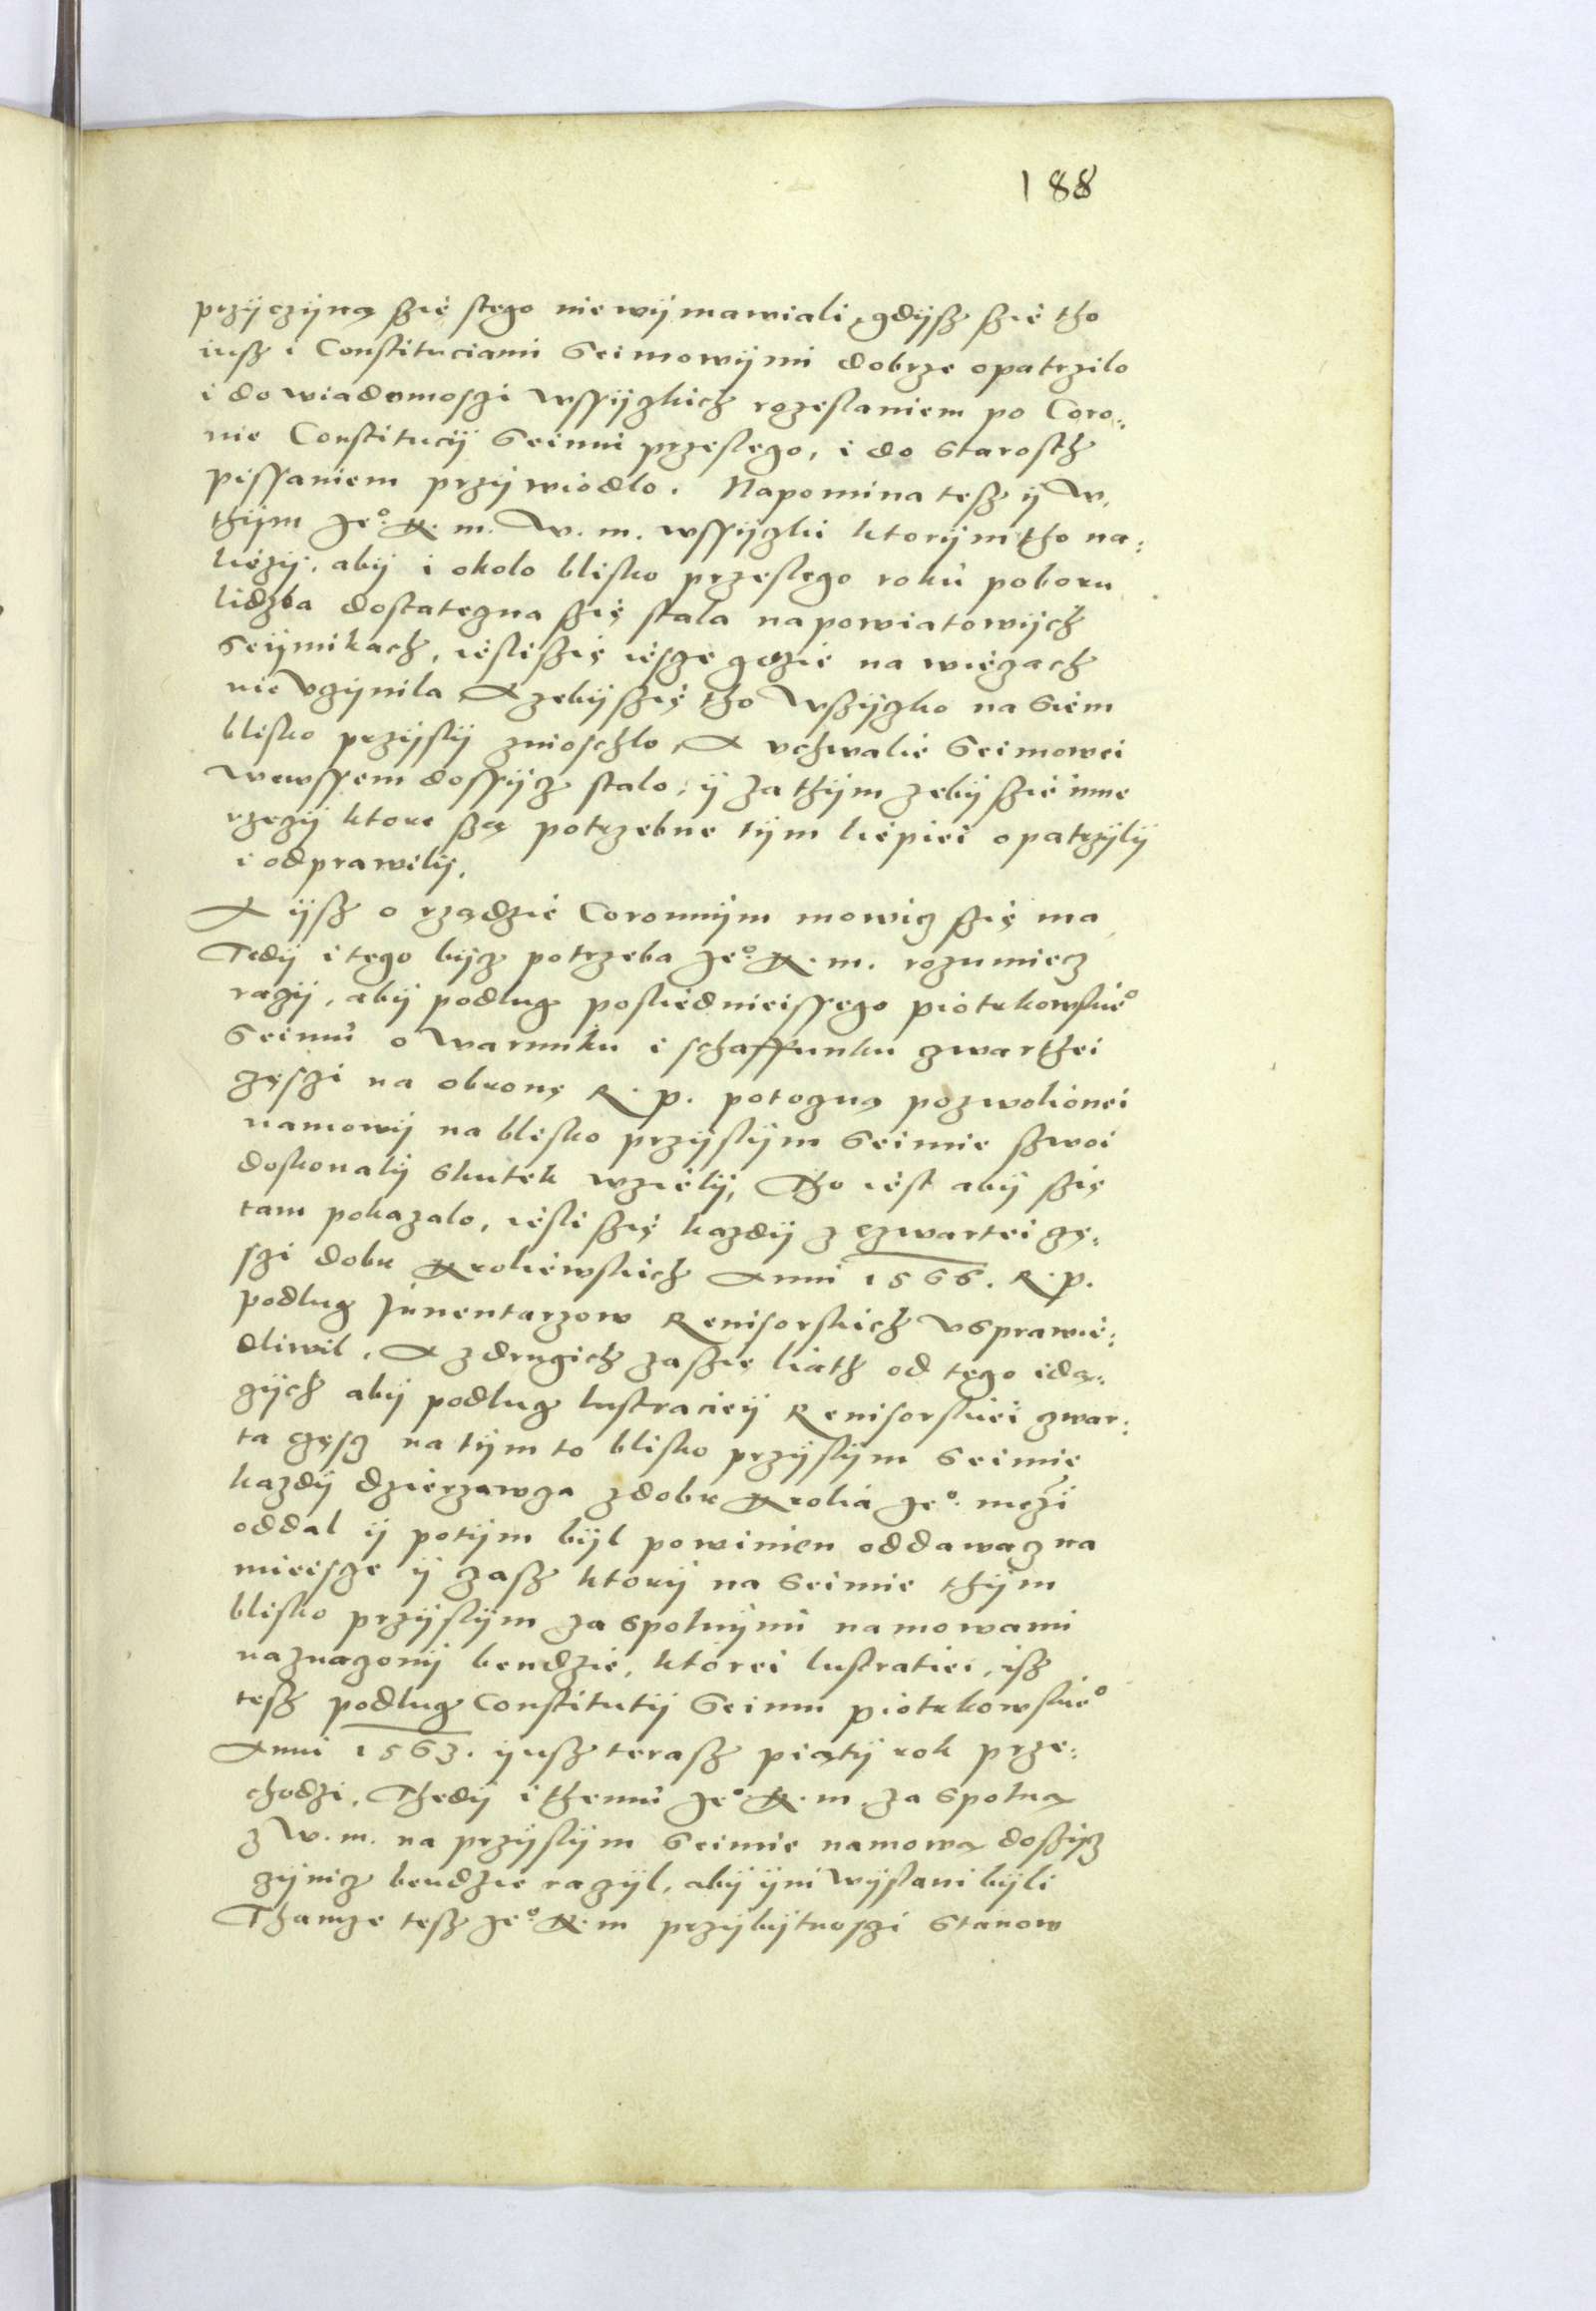 188
przÿczÿną ßię stego nie wÿmawiali, gdÿsz ßię tho
iusz i Constituciami Seimowÿmi dobrze opatrzilo
i do wiadomosczi wssÿzkich rozeslaniem po Coro„
nie Constitucÿ Seimu przeslego, i do starosth
pissaniem przÿwiodlo. Napomina tesz ÿ w.
thÿm Jeº. K. m. W. m. wssÿzki ktorÿm tho na:
liezÿ. abÿ i okolo blisko przeslego rokú poboru
lidzba dostatezna ßię stala na powiatowÿch
Seÿmikach, iesli ßię iesze gdzie na wiezach
nie vzÿnila A zebÿ ßię tho wßÿzko na Siem
blisko przÿslÿ znioschlo, A vchwalie Seimowei
wewssem dossÿz stalo, ÿ za thÿm zebÿ ßię inne
rzezÿ ktore ßą potrzebne tÿm liepiei opatrzÿlÿ
i odprawilÿ.
A ÿsz o rządzie Coronnÿm mowiz ßię ma
Tedÿ i tego bÿz potrzeba Jeº. K. m. rozumiez
razÿ, abÿ podlug posliednieissego piotrkowskieº
Seimú o warunku i schaffunku zwarthei
zęszi na obronę R. p. potozną pozwolionei
namowÿ na blisko przÿslÿm Seimie ßwoi
doskonalÿ skutek wzielÿ, Tho iest abÿ ßię
tam pokazalo, iesli ßię kazdÿ z czwartei zę:
szi dobr Kroliewskich Anni 1566. R. p.
podlug Jnuentarzow Reuisorskich vsprawie:
dliwil. A zdrugich zaßię liath od tego idą:
zÿch abÿ podlug lustraciei Reuisorskiei zwar:
ta zęsz na tÿm to blisko przÿslÿm Seimie
kazdÿ dzierzawza zdobr Krolia Jeº. mczi
oddal ÿ potÿm bÿl powinien oddawaz na
mieisze ÿ zasz ktorÿ na Seimie thÿm
blisko przÿslÿm za spolnÿmi namowami
naznazonÿ bendzie, ktorei lustratiei, isz
tesz podlug Constitutÿ Seimu piotrkowskieº
Anni 1563. ÿusz terasz piątÿ rok prze:
chodzi, Thedÿ i themú Jeº. K. m. za spolną
z W. m. na przÿslÿm Seimie namową doßÿz
zÿniz bendzie razÿl, abÿ ÿni wÿslani bÿli
Thamze tesz Jeº. K. m przÿbÿtnoszi stanow